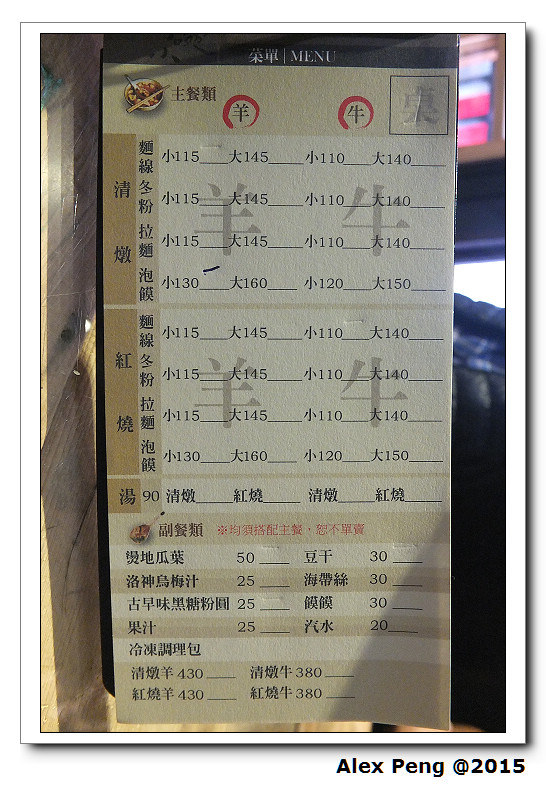 菜單 | MENU
主餐類 羊 牛 桌
清燉
麵線 小115 大145 小110 大140
冬粉 小115 大145 小110 大140
拉麵 小115 大145 小110 大140
泡饃 小130 大160 小120 大150
羊 牛
紅燒
麵線 小115 大145 小110 大140
冬粉 小115 大145 小110 大140
拉麵 小115 大145 小110 大140
泡饃 小130 大160 小120 大150
羊 牛
湯 90 清燉 紅燒 清燉 紅燒
副餐類 ※均須搭配主餐,恕不單賣
燙地瓜葉 50 豆干 30
洛神烏梅汁 25 海帶絲 30
古早味黑糖粉圓 25 饃饃 30
果汁 25 汽水 20
冷凍調理包
清燉羊 430 清燉牛 380
紅燒羊 430 紅燒牛 380
Alex Peng @2015